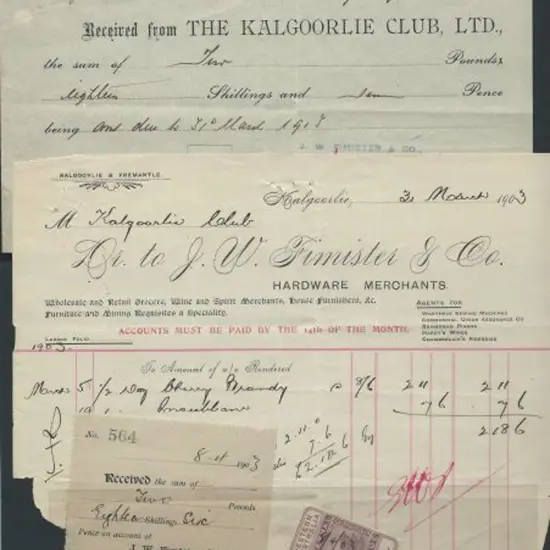 Received from THE KALGOORLIE CLUB, LTD.,
the sum of Two Pounds
Eighteen Shillings and Pence
being amt due to 31st March 1903
KALGOORLIE & FREMANTLE.
Kalgoorlie, 31 March 1903
M Kalgoorlie Club
Dr. to J. W. Fimister & Co.
HARDWARE MERCHANTS.
Wholesale and Retail Grocers, Wine and Spirit Merchants, House Furnishers, &c.
Furniture and Mining Requisites a Speciality.
AGENTS FOR
WERTHEIM SEWING MACHINES
COMMERCIAL UNION ASSURANCE CO
CHAMBERLAIN'S REMEDIES
ACCOUNTS MUST BE PAID BY THE 14th OF THE MONTH.
LEDGER FOLIO
1903.
To Amount of a/c Rendered
March 5 1/2 Doz Cherry Brandy 8/6 2 11 2 11
19 7 6 7 6
2 11 0
7 6
£2.18.6
2 18 6
No. 564
8-4 1903
Received the sum of
Two Pounds
Eighteen Shillings Six
Pence on account of
J. W.
WESTERN AUSTRALIA